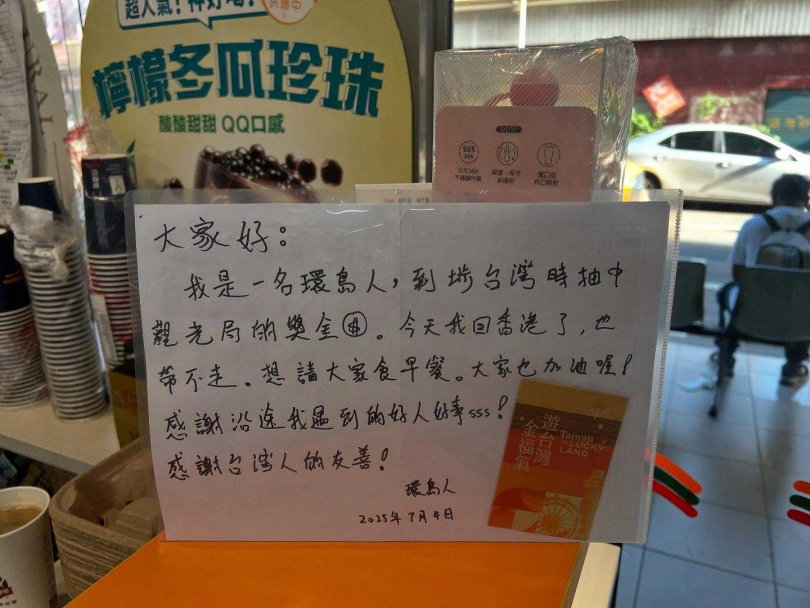 超人氣！神好喝！
供應中
檸檬冬瓜珍珠
酸酸甜甜 QQ口感
SUS
304
大家好：
我是一名環島人，到埗台灣時抽中
觀光局的獎金。今天我回香港了，也
帶不走。想請大家食早餐。大家也加油喔！
感謝沿途我遇到的好人好事sss！
感謝台灣人的友善！
環島人
2025年7月4日
遊台灣
金福氣
Taiwan
the LUCKY
LAND